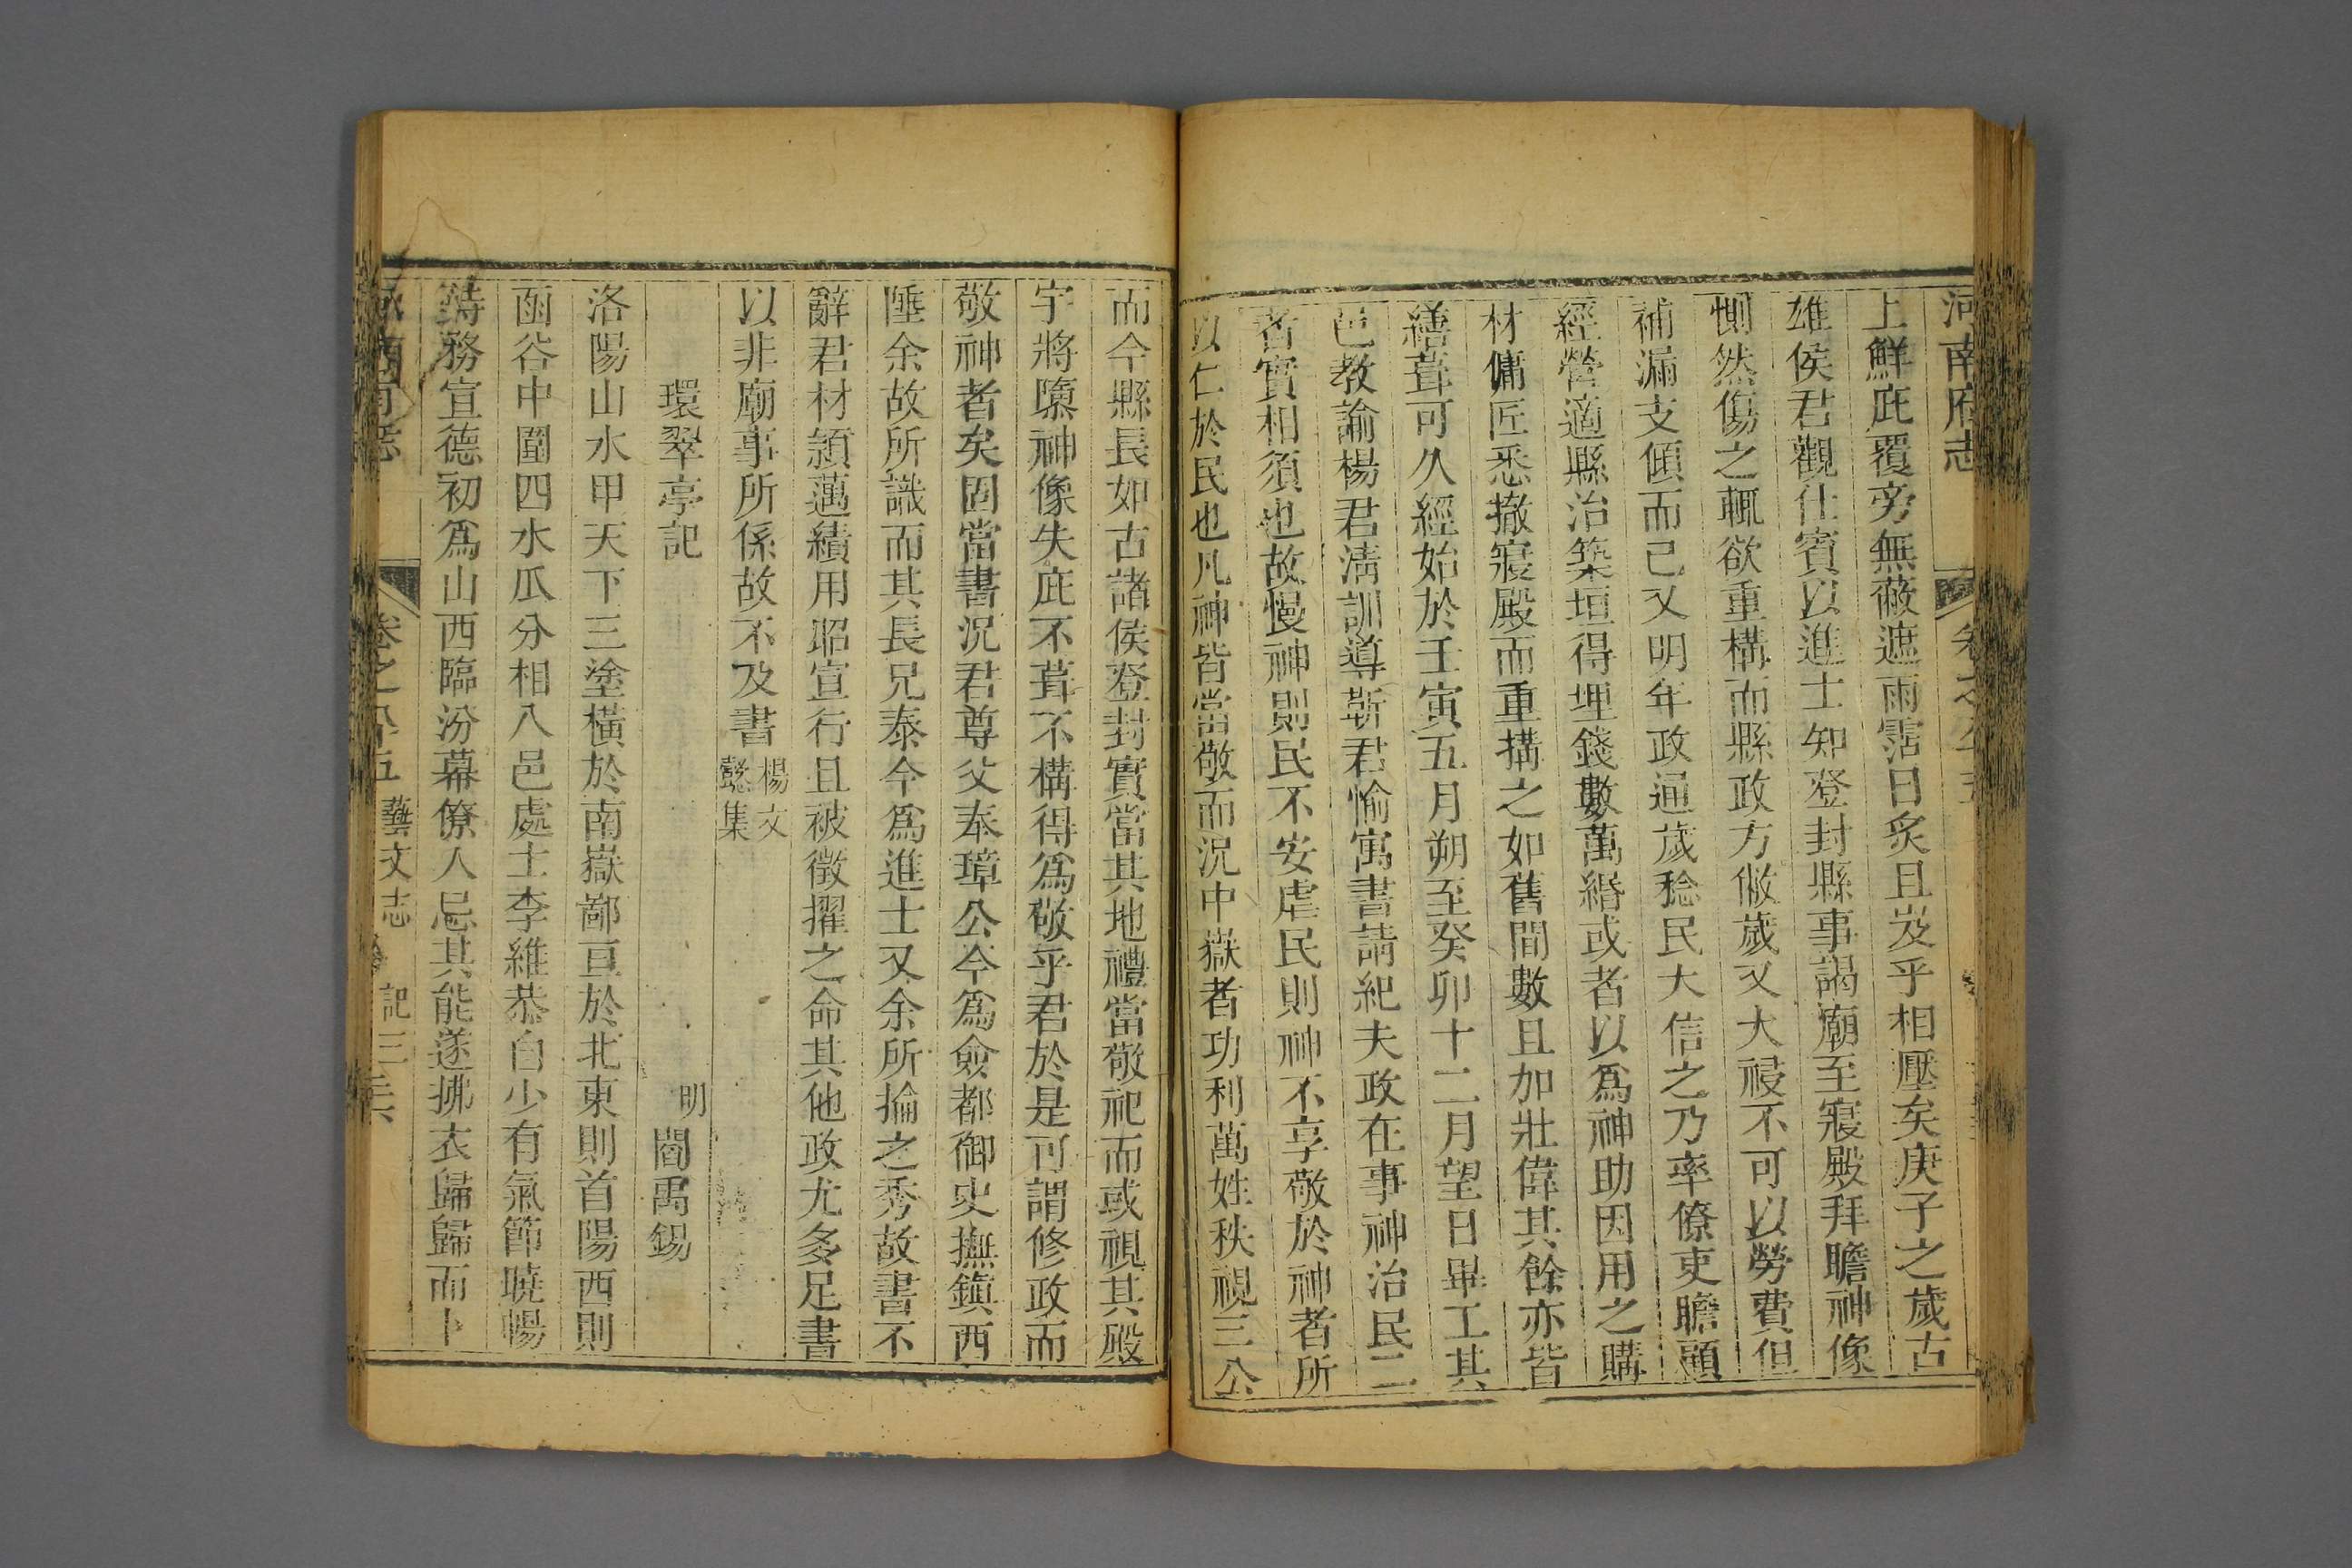 河南府志 卷之八十五
上鮮庇覆旁無蔽遮雨霑日炙且岌乎相壓矣庚子之歲古
雄侯君觀仕賓以進士知登封縣事謁廟至寢殿拜瞻神像
惻然傷之輒欲重構而縣政方僘歲又大祲不可以勞費但
補漏支傾而已又明年政通歲稔民大信之乃率僚吏瞻顧
經營適縣治築垣得埋錢數萬緡或者以爲神助因用之購
材傭匠悉撤寢殿而重搆之如舊間數且加壯偉其餘亦皆
繕葺可久經始於壬寅五月朔至癸卯十二月望日畢工其
邑教諭楊君清訓導靳君愉寓書請紀夫政在事神治民二
者實相須也故慢神則民不安虐民則神不享敬於神者所
以仁於民也凡神皆當敬而況中嶽者功利萬姓秩視三公
而今縣長如古諸侯登封實當其地禮當敬祀而或視其殿
宇將隳神像失庇不葺不構得爲敬乎君於是可謂修政而
敬神者矣固當書況君尊父奉璋公今爲僉都御史撫鎮西
陲余故所識而其長兄泰今爲進士又余所掄之秀故書不
辭君材頴邁績用昭宣行且被徵擢之命其他政尤多足書
以非廟事所係故不及書 楊文懿集
環翠亭記
明 閻禹錫
洛陽山水甲天下三塗橫於南嶽鄙亘於北東則首陽西則
函谷中圍四水瓜分相入邑處士李維恭自少有氣節曉暢
時務宣德初爲山西臨汾幕僚人忌其能遂拂衣歸歸而卜
河南府志 卷之八十五 藝文志 記三